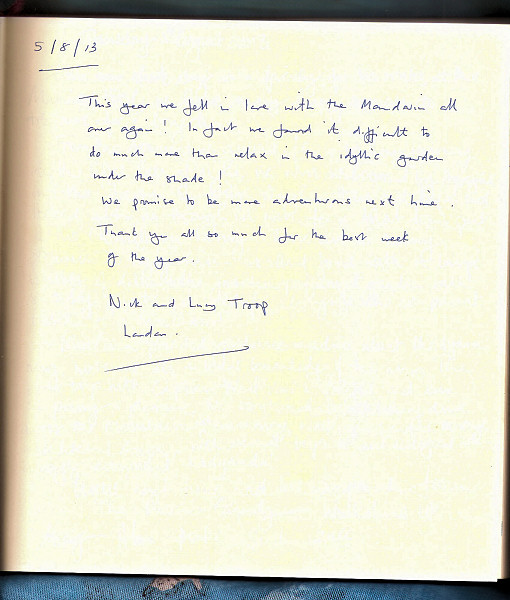 5/8/13
This year we fell in love with the Mandarin all
over again! In fact we found it difficult to
do much more than relax in the idyllic garden
under the shade!
We promise to be more adventurous next time.
Thank you all so much for the best week
of the year.
Nick and Lucy Troop
London.